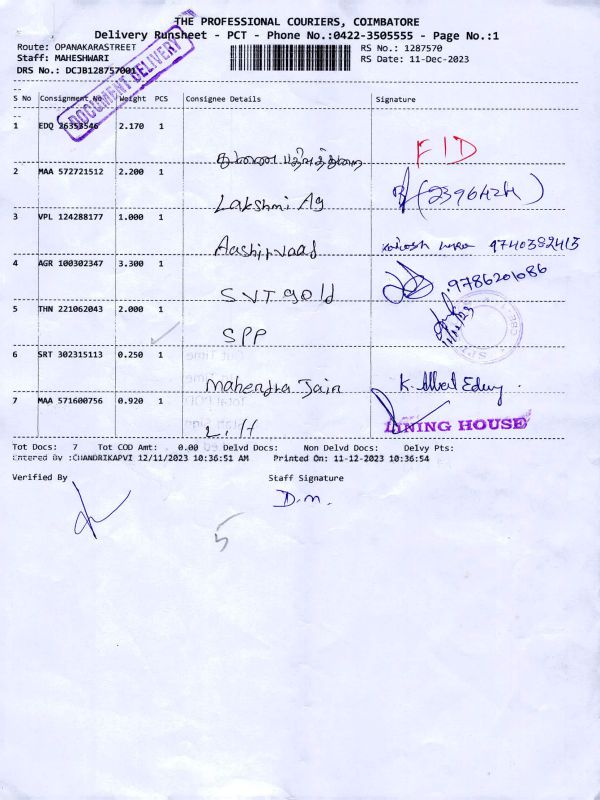 THE PROFESSIONAL COURIERS, COIMBATORE
Delivery Runsheet - PCT - Phone No.:0422-3505555 - Page No.:1
Route: OPANAKARASTREET
RS No.: 1287570
Staff: MAHESHWARI
RS Date: 11-Dec-2023
DRS No.: DCJB1287570011
DOCUMENT DELIVERY
S No Consignment No Weight PCS Consignee Details Signature
1 EDQ 26353546 2.170 1
FID
2 MAA 572721512 2.200 1
Lakshmi Ag (2396424)
3 VPL 124288177 1.000 1
Aashirvaad 9740392413
4 AGR 100302347 3.300 1
SVT gold 9786201086
5 THN 221062043 2.000 1
SPP 11/12/23
6 SRT 302315113 0.250 1
Mahendra Jain K. Albert Edwy.
7 MAA 571600756 0.920 1
L.H LINING HOUSE
Tot Docs: 7 Tot COD Amt: 0.00 Delvd Docs: Non Delvd Docs: Delvy Pts:
Entered By :CHANDRIKAPVI 12/11/2023 10:36:51 AM Printed On: 11-12-2023 10:36:54
Verified By Staff Signature
D.M.
5